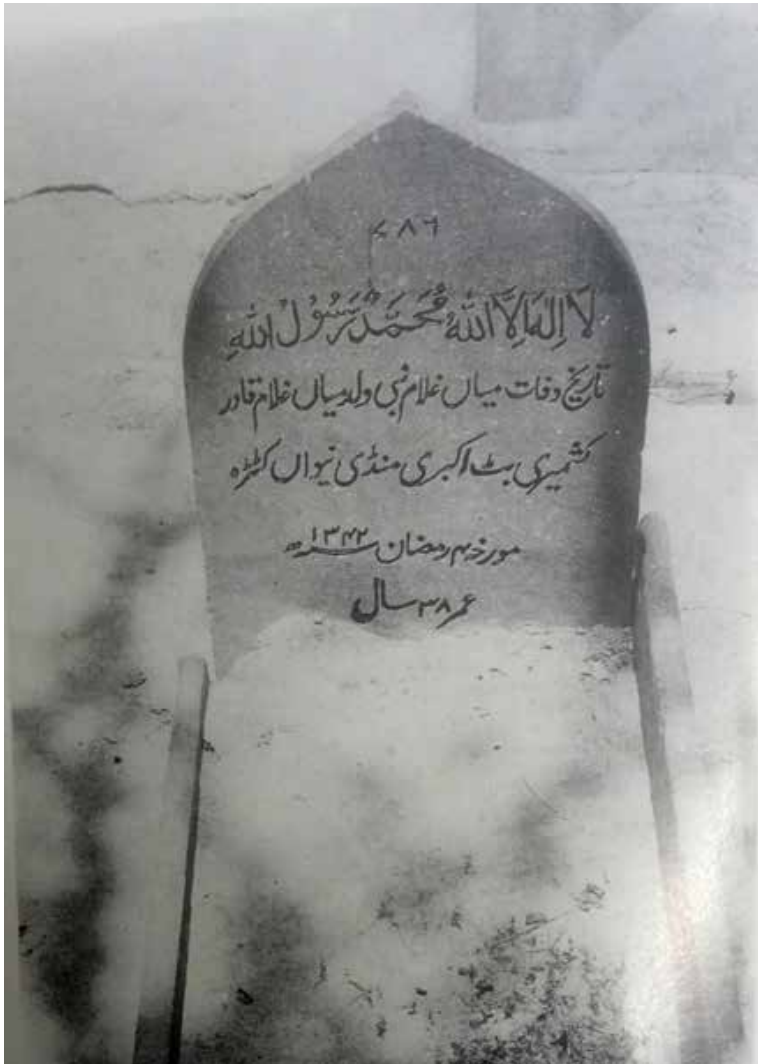 ۷۸۶
لَا اِلٰهَ اِلَّا اللّٰهُ مُحَمَّدٌ رَّسُوْلُ اللّٰهِ
تاریخ وفات میاں غلام نبی ولد میاں غلام قادر
کشمیری بٹ اکبری منڈی نیواں کٹڑہ
مورخہ ۴ رمضان ۱۳۴۲ھ
عمر ۳۸ سال